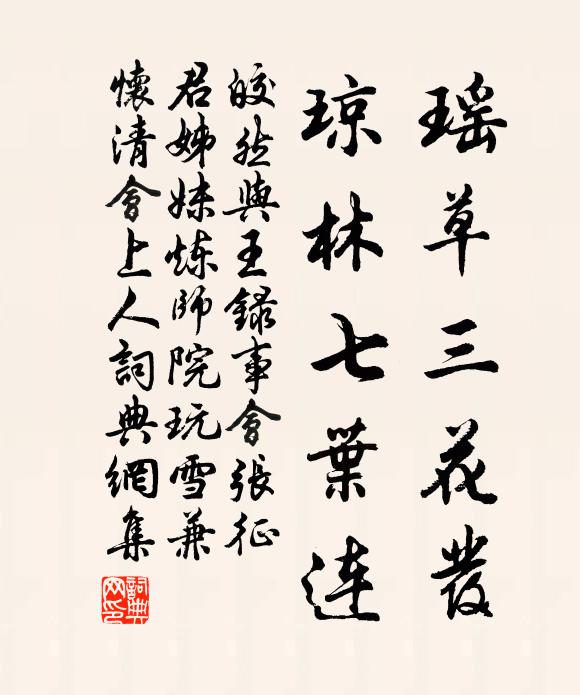 瑶草三花發
琼林七葉連
皎然與王錄事會張征
君姊妹炼師院玩雪兼
懷清會上人詞典網集
詞典網印